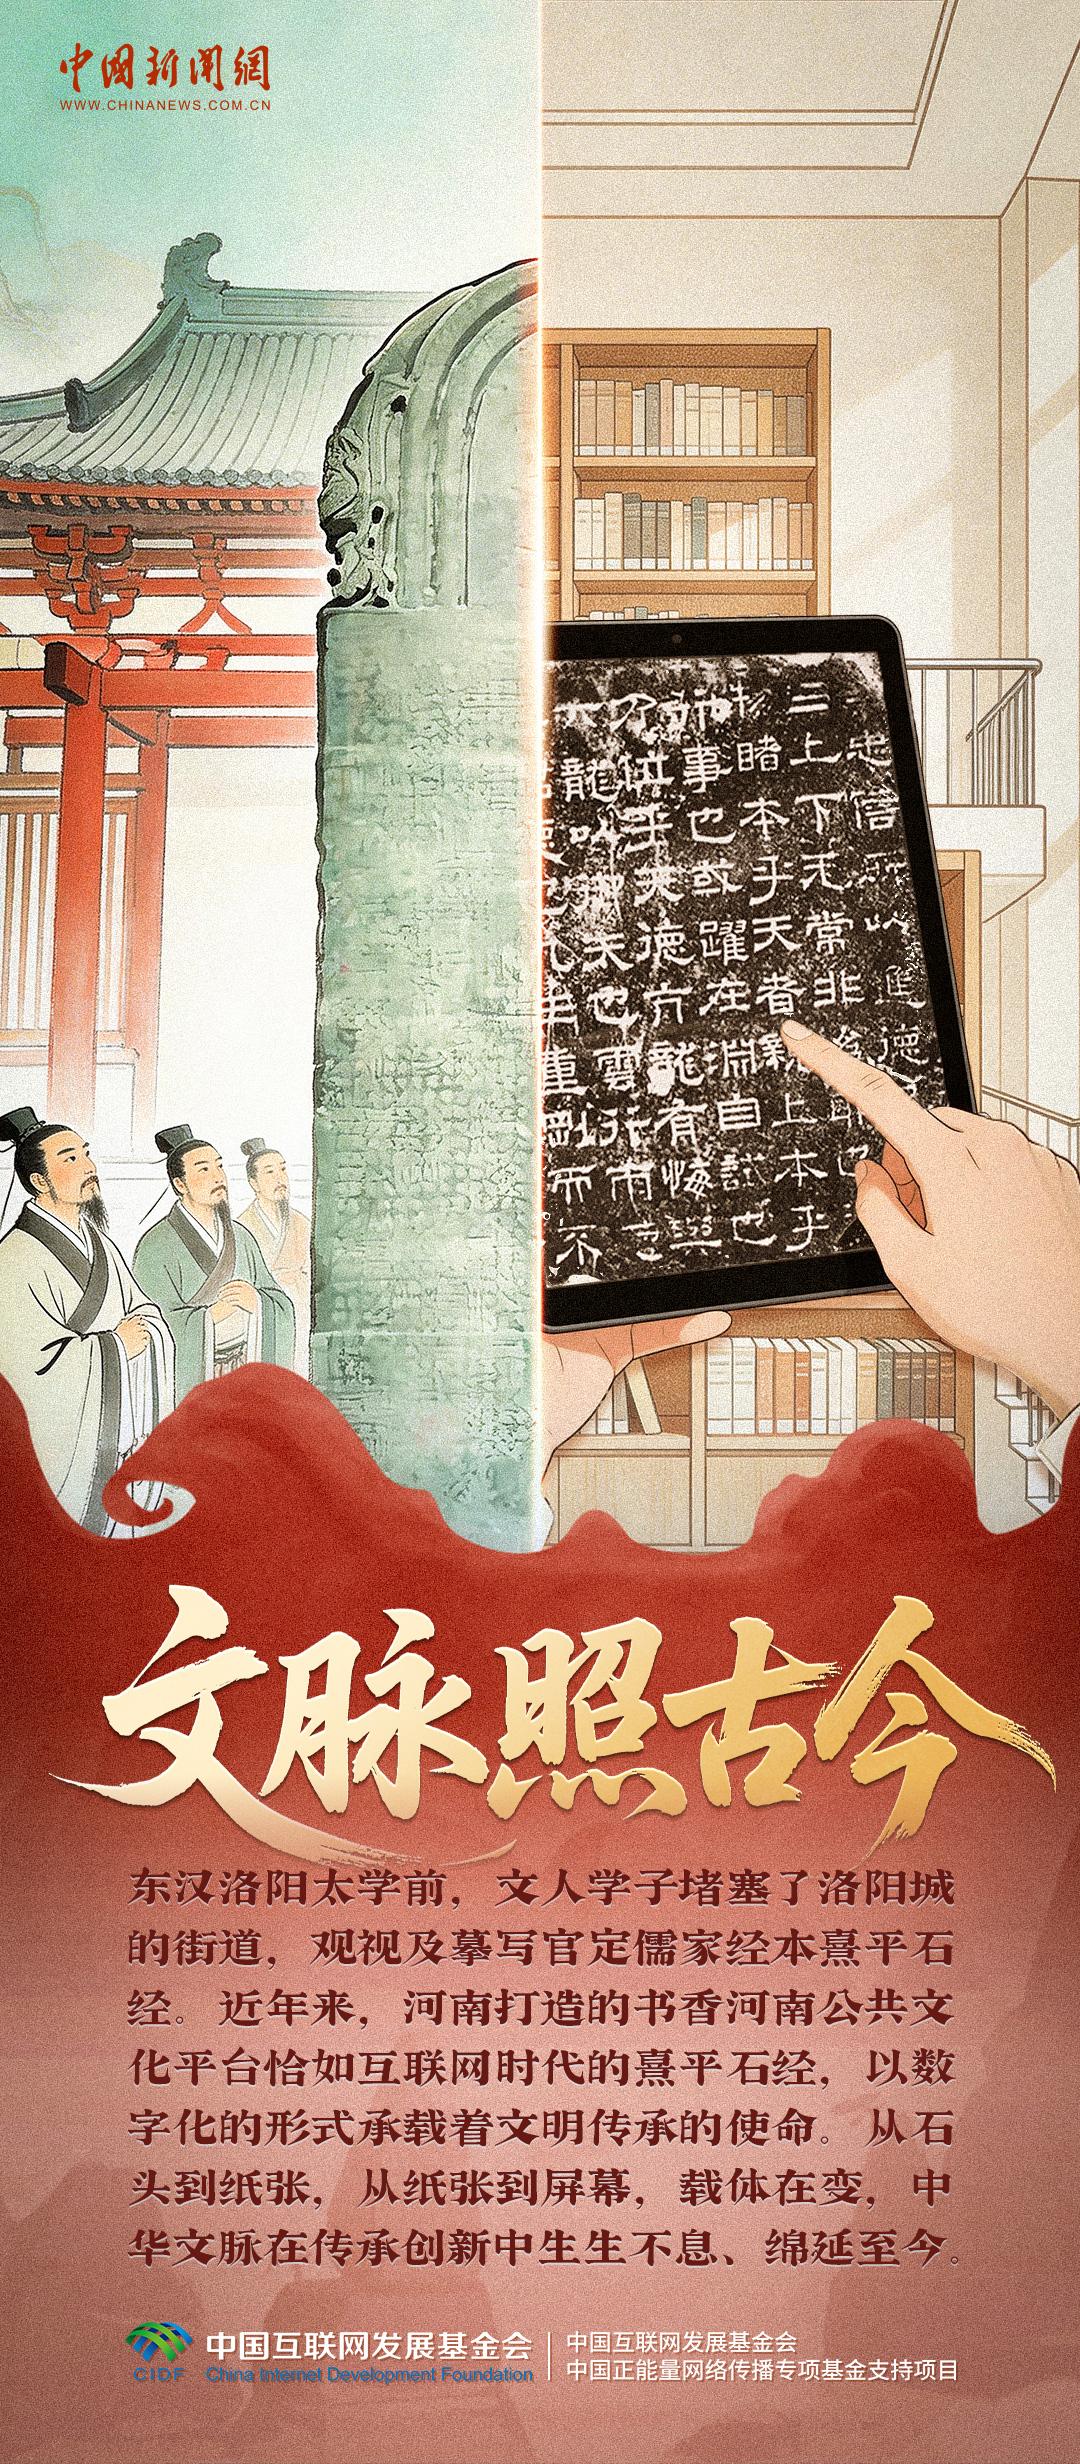 中國新聞網
WWW.CHINANEWS.COM.CN
忠信所以進德
三上下无常非
物睹本乎天者親上本乎
事也或躍在淵自試也
乃
天德亢龍有悔與
龍
天也雲行雨
文脉照古今
东汉洛阳太学前，文人学子堵塞了洛阳城
的街道，观视及摹写官定儒家经本熹平石
经。近年来，河南打造的书香河南公共文
化平台恰如互联网时代的熹平石经，以数
字化的形式承载着文明传承的使命。从石
头到纸张，从纸张到屏幕，载体在变，中
华文脉在传承创新中生生不息、绵延至今。
CIDF
中国互联网发展基金会
China Internet Development Foundation
中国互联网发展基金会
中国正能量网络传播专项基金支持项目